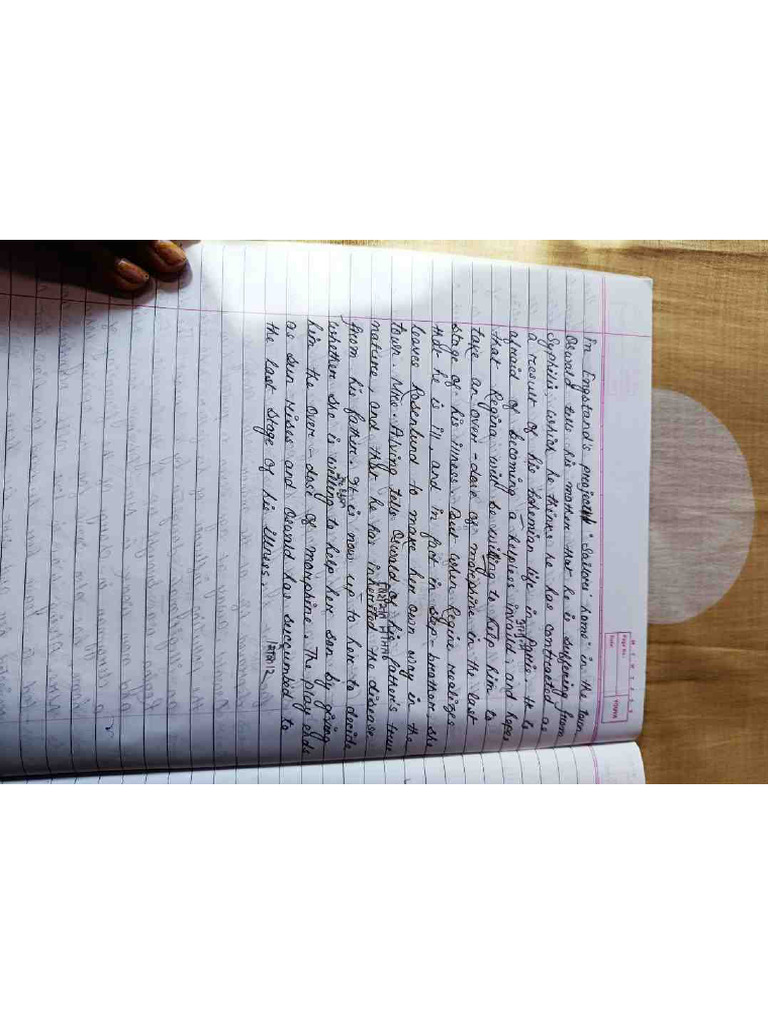 Page No.:
Date:
YOUVA
in Engstand's project "Sailors' home" in the town.
Oswald tells his mother that he is suffering from
Syphilis, which he thinks he has contracted as
a result of his bohemian life in Paris. He is
afraid of becoming a helpless invalid, and hopes
that Regina will be willing to help him to
take an over-dose of morphine in the last
stage of his illness. But when Regine realizes
that he is ill, and in fact in step-brother, she
leaves Rosenlund to make her own way in the
town. Mrs. Alving tells Oswald of his father's true
nature, and that he has inherited the disease
from his father. It is now up to her to decide
whether she is willing to help her son by giving
him the over-dose of morphine. The play ends
as sun rises and Oswald has succumbed to
the last stage of his illness.